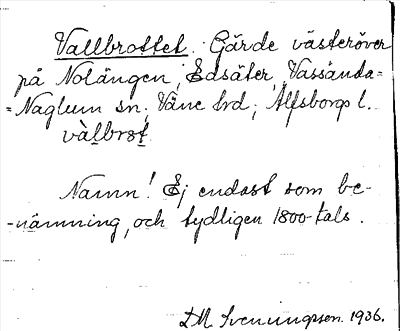 Vallbrottet. Gärde västeröver
på Nolängen, Edsäter, Vassända-
=Naglum sn; Väne hrd; Älfsborgs l.
vàlbrot
Namn! Ej endast som be-
-nämning, och tydligen 1800-tals.
D.M. Svenungsson. 1936.